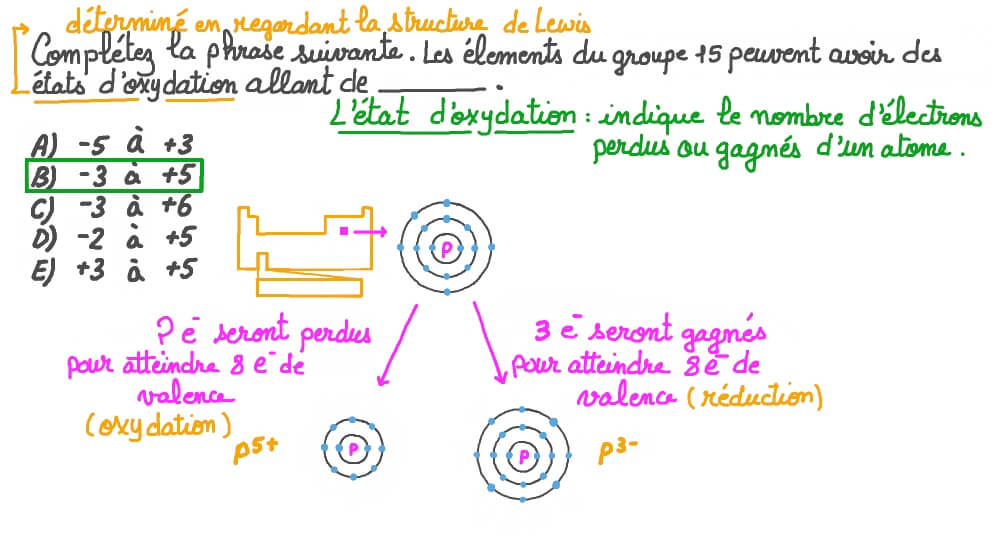 déterminé en regardant la structure de Lewis
Complétez la phrase suivante. Les élements du groupe 15 peuvent avoir des
états d'oxydation allant de ________.
L'état d'oxydation : indique le nombre d'électrons
perdus ou gagnés d'un atome.
A) -5 à +3
B) -3 à +5
C) -3 à +6
D) -2 à +5
E) +3 à +5
P
? e⁻ seront perdus
pour atteindre 8 e⁻ de
valence
(oxydation)
3 e⁻ seront gagnés
pour atteindre 8 e⁻ de
valence (réduction)
P⁵⁺
P
P
P³⁻